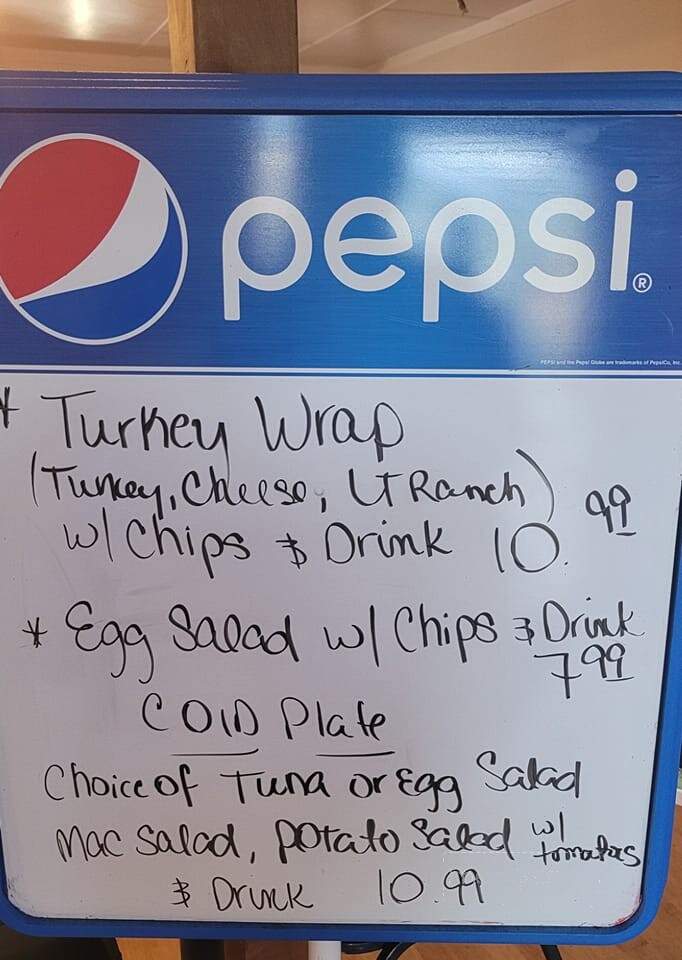 pepsi®
PEPSI and the Pepsi Globe are trademarks of PepsiCo, Inc.
* Turkey Wrap
(Turkey, Cheese, LT Ranch)
w/ Chips & Drink 10.99
* Egg Salad w/ Chips & Drink
7.99
COlD Plate
Choice of Tuna or Egg Salad
Mac Salad, Potato Salad w/ tomatoes
& Drink 10.99